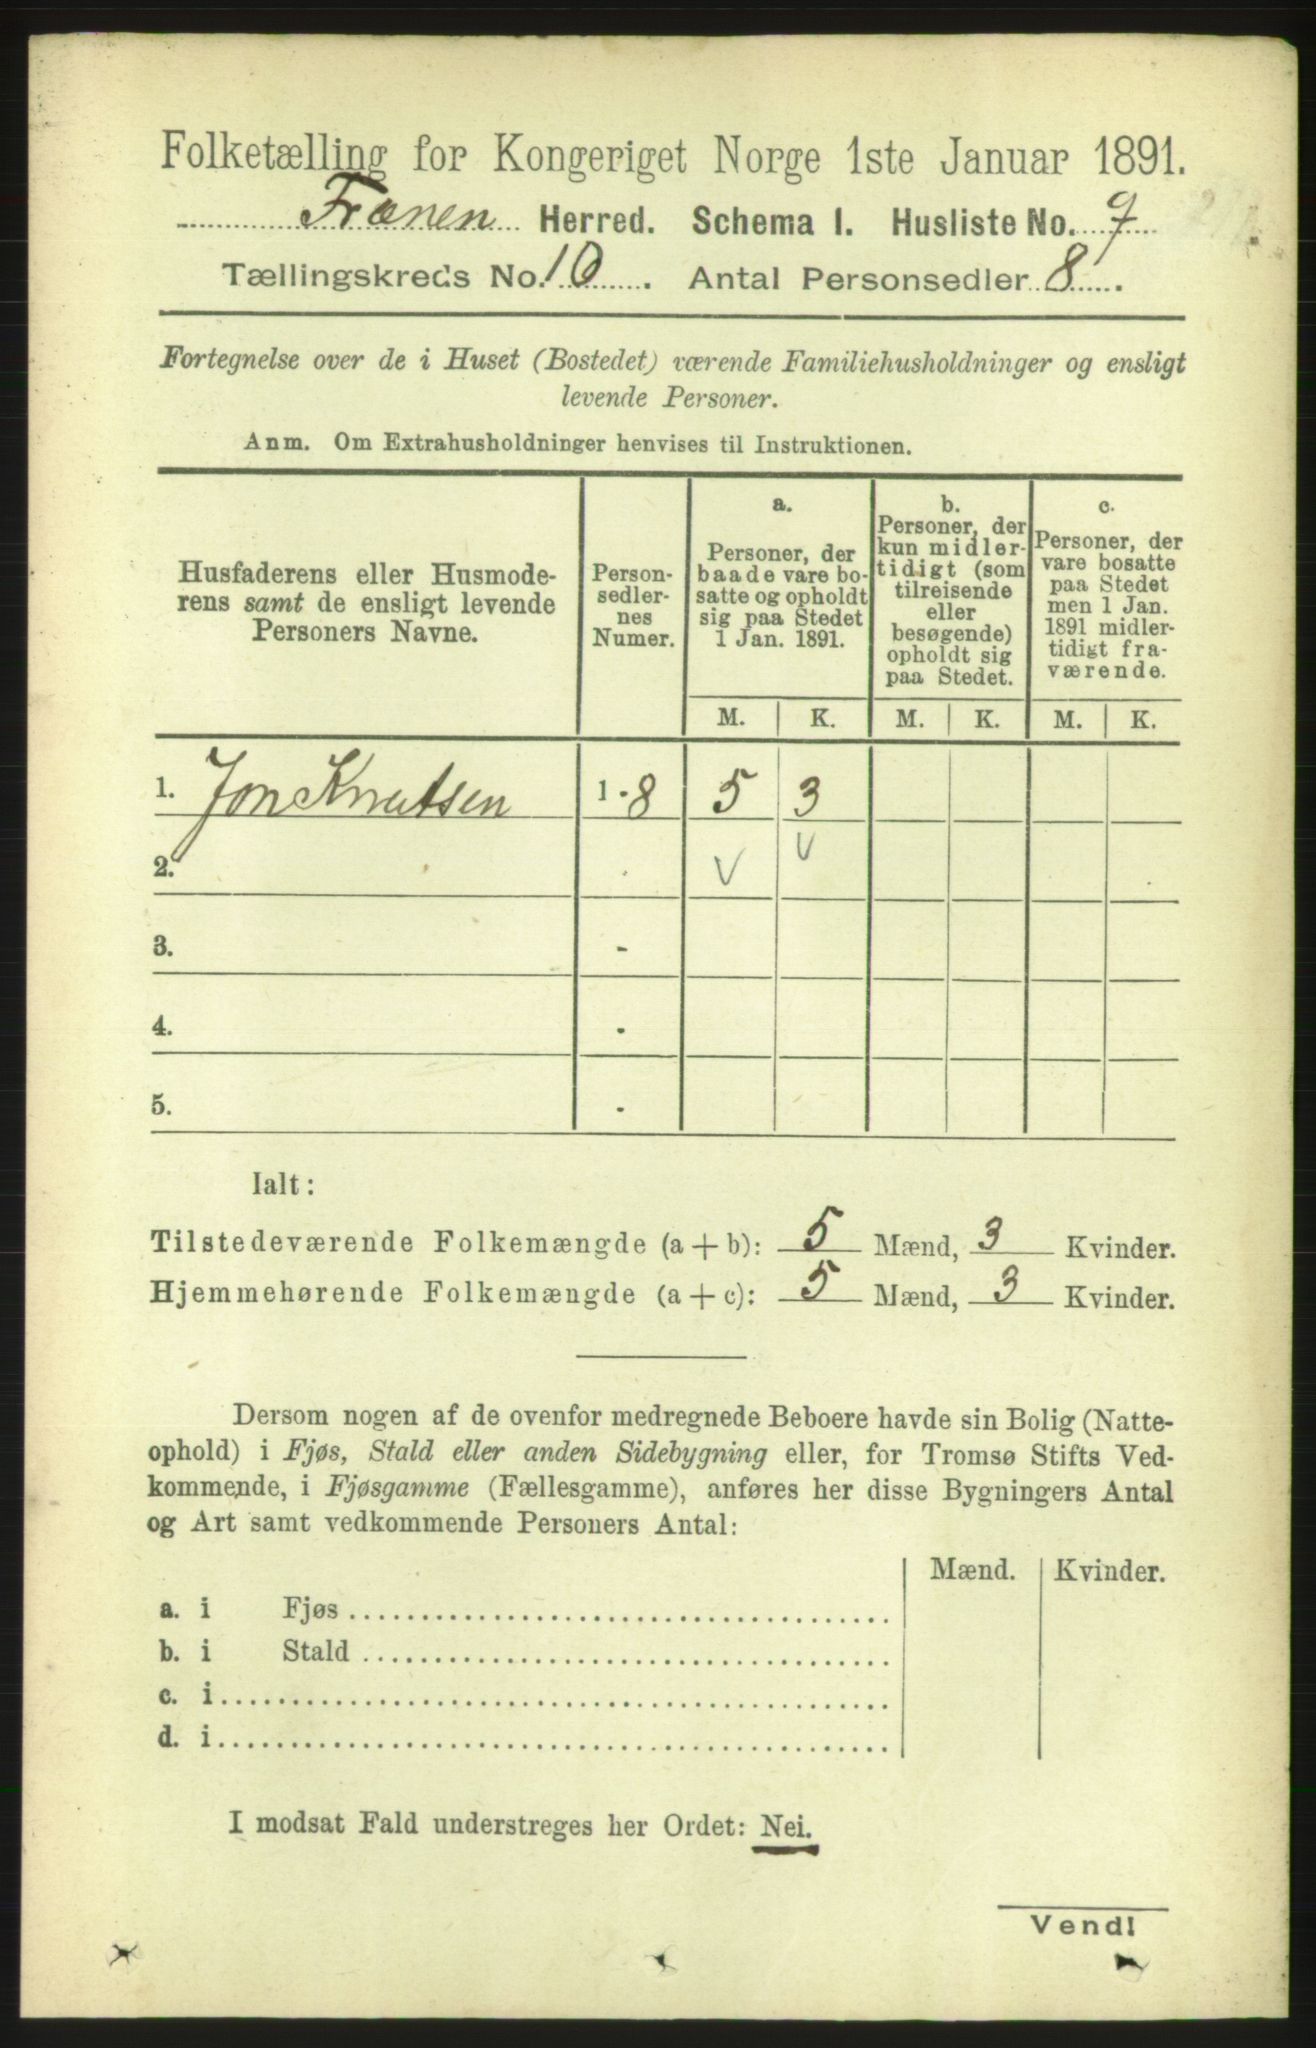 Folketælling for Kongeriget Norge 1ste Januar 1891.
Frænen Herred. Schema I. Husliste No. 9
Tællingskreds No. 10. Antal Personsedler 8.
Fortegnelse over de i Huset (Bostedet) værende Familiehusholdninger og ensligt
levende Personer.
Anm. Om Extrahusholdninger henvises til Instruktionen.
Husfaderens eller Husmode-
rens samt de ensligt levende
Personers Navne.
Person-
sedler-
nes
Numer.
a.
Personer, der
baade vare bo-
satte og opholdt
sig paa Stedet
1 Jan. 1891.
b.
Personer, der
kun midler-
tidigt (som
tilreisende
eller
besøgende)
opholdt sig
paa Stedet.
c.
Personer, der
vare bosatte
paa Stedet
men 1 Jan.
1891 midler-
tidigt fra-
værende.
M. K. M. K. M. K.
1. Jon Knutsen 1-8 5 3
2.
3. -
4. -
5. -
Ialt:
Tilstedeværende Folkemængde (a+b): 5 Mænd, 3 Kvinder.
Hjemmehørende Folkemængde (a+c): 5 Mænd, 3 Kvinder.
Dersom nogen af de ovenfor medregnede Beboere havde sin Bolig (Natte-
ophold) i Fjøs, Stald eller anden Sidebygning eller, for Tromsø Stifts Ved-
kommende, i Fjøsgamme (Fællesgamme), anføres her disse Bygningers Antal
og Art samt vedkommende Personers Antal:
Mænd. Kvinder.
a. i Fjøs
b. i Stald
c. i
d. i
I modsat Fald understreges her Ordet: Nei.
Vend!